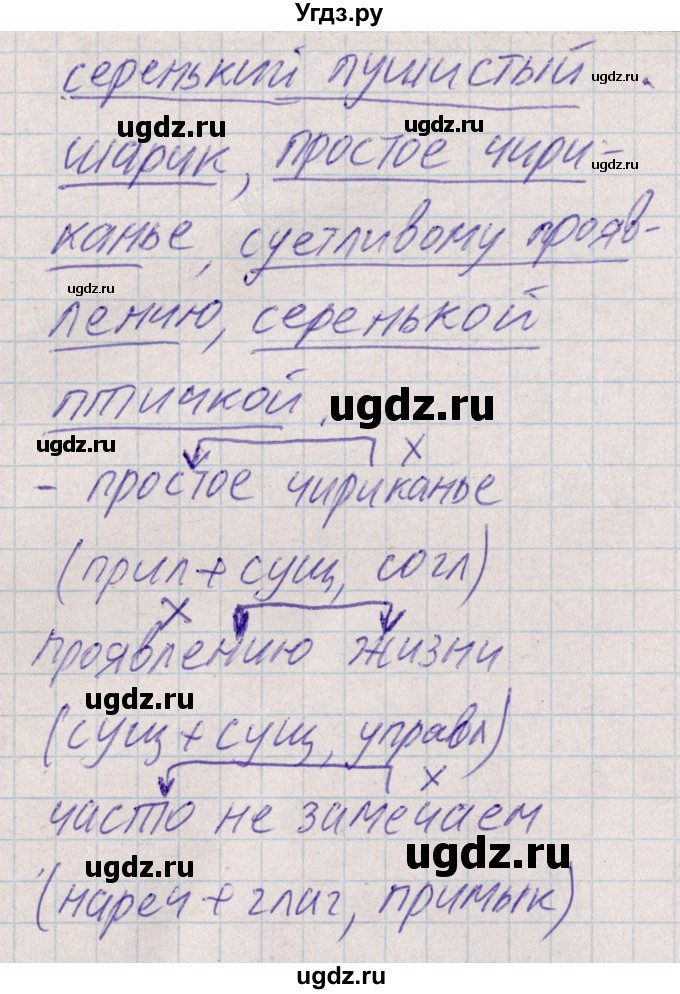 Угдз.ру
серенький пушистый
ugdz.ru
ugdz.ru
шарик, простое чири-
ugdz.ru
канье, суетливому прояв-
ugdz.ru
лению, серенькой
птичкой.
ugdz.ru
ugdz.ru
х
- простое чириканье
(прил + сущ, согл)
х
проявлению жизни
ugdz.ru
(сущ + сущ, управл)
х
часто не замечаем
ugdz.ru
ugdz.ru
(нареч + глаг, примык)
ugdz.ru